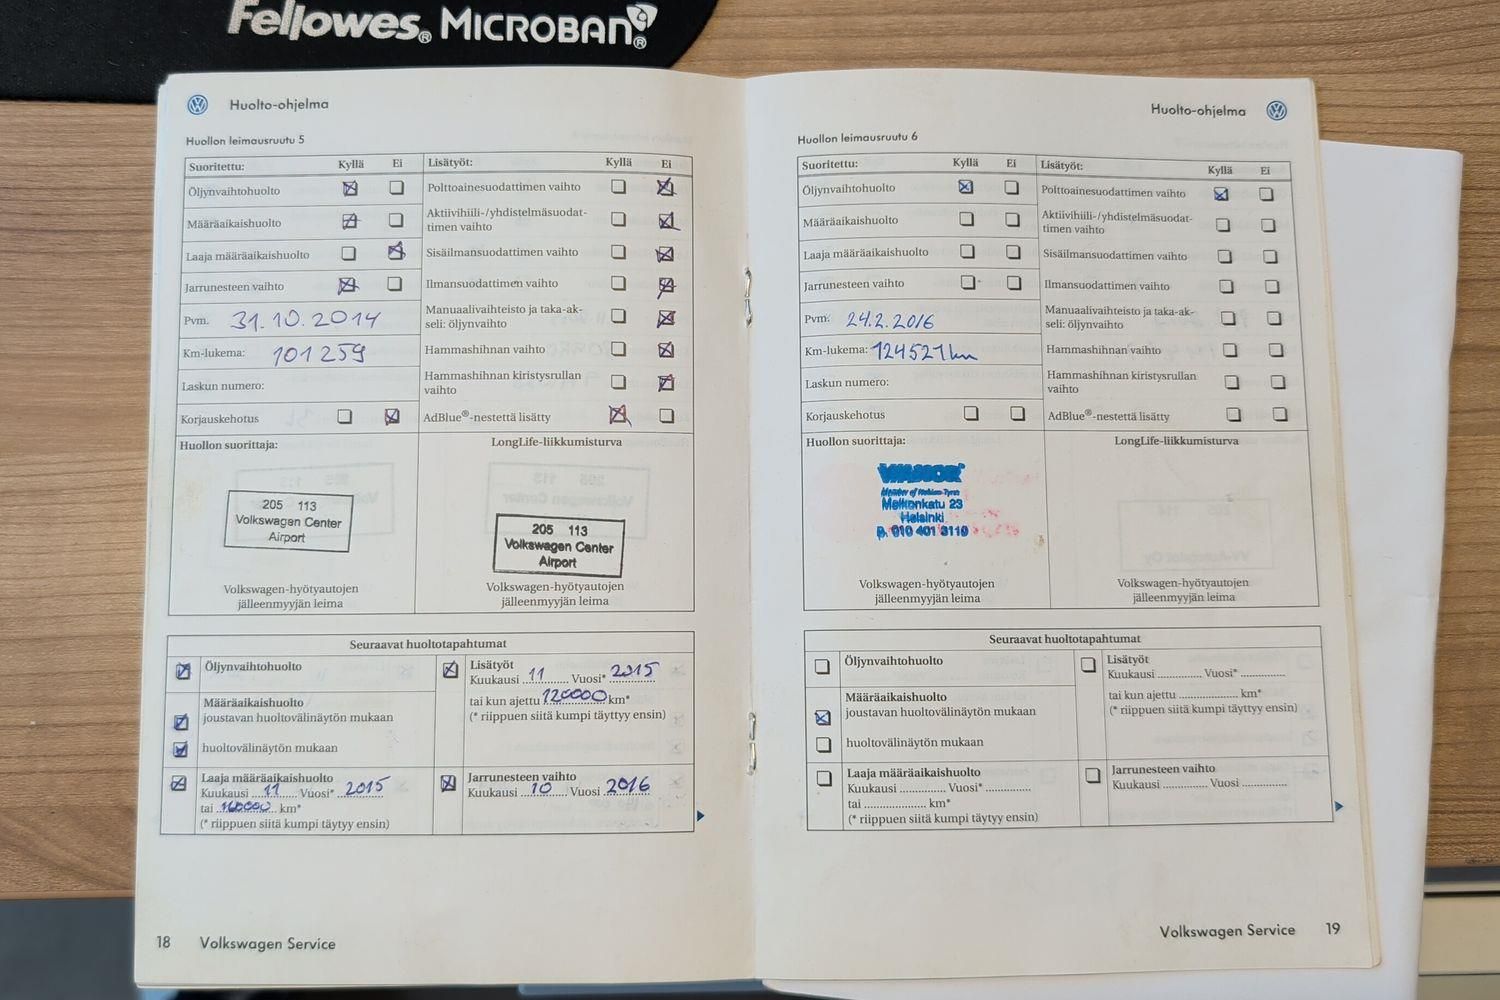 Fellowes® MICROBAN®
Huolto-ohjelma
Huollon leimausruutu 5
Suoritettu: Kyllä Ei Lisätyöt: Kyllä Ei
Öljynvaihtohuolto Polttoainesuodattimen vaihto
Määräaikaishuolto Aktiivihiili-/yhdistelmäsuodat-
timen vaihto
Laaja määräaikaishuolto Sisäilmansuodattimen vaihto
Jarrunesteen vaihto Ilmansuodattimen vaihto
Pvm. 31.10.2014 Manuaalivaihteisto ja taka-ak-
seli: öljynvaihto
Km-lukema: 101259 Hammashihnan vaihto
Laskun numero: Hammashihnan kiristysrullan
vaihto
Korjauskehotus AdBlue®-nestettä lisätty
Huollon suorittaja: LongLife-liikkumisturva
205 113
Volkswagen Center
Airport
205 113
Volkswagen Center
Airport
Volkswagen-hyötyautojen
jälleenmyyjän leima
Volkswagen-hyötyautojen
jälleenmyyjän leima
Seuraavat huoltotapahtumat
Öljynvaihtohuolto
Lisätyöt
Kuukausi 11 Vuosi* 2015
tai kun ajettu 120000 km*
(* riippuen siitä kumpi täyttyy ensin)
Määräaikaishuolto
joustavan huoltovälinäytön mukaan
huoltovälinäytön mukaan
Laaja määräaikaishuolto
Kuukausi 11 Vuosi* 2015
tai km*
(* riippuen siitä kumpi täytyy ensin)
Jarrunesteen vaihto
Kuukausi 10 Vuosi 2016
18 Volkswagen Service
Huolto-ohjelma
Huollon leimausruutu 6
Suoritettu: Kyllä Ei Lisätyöt: Kyllä Ei
Öljynvaihtohuolto Polttoainesuodattimen vaihto
Määräaikaishuolto Aktiivihiili-/yhdistelmäsuodat-
timen vaihto
Laaja määräaikaishuolto Sisäilmansuodattimen vaihto
Jarrunesteen vaihto Ilmansuodattimen vaihto
Pvm. 24.2.2016 Manuaalivaihteisto ja taka-ak-
seli: öljynvaihto
Km-lukema: 124521km Hammashihnan vaihto
Laskun numero: Hammashihnan kiristysrullan
vaihto
Korjauskehotus AdBlue®-nestettä lisätty
Huollon suorittaja: LongLife-liikkumisturva
VIANOR
Member of Nokian Tyres
Melkonkatu 23
Helsinki
p. 010 401 3110
Volkswagen-hyötyautojen
jälleenmyyjän leima
Volkswagen-hyötyautojen
jälleenmyyjän leima
Seuraavat huoltotapahtumat
Öljynvaihtohuolto
Lisätyöt
Kuukausi Vuosi*
tai kun ajettu km*
(* riippuen siitä kumpi täyttyy ensin)
Määräaikaishuolto
joustavan huoltovälinäytön mukaan
huoltovälinäytön mukaan
Laaja määräaikaishuolto
Kuukausi Vuosi*
tai km*
(* riippuen siitä kumpi täytyy ensin)
Jarrunesteen vaihto
Kuukausi Vuosi
Volkswagen Service 19